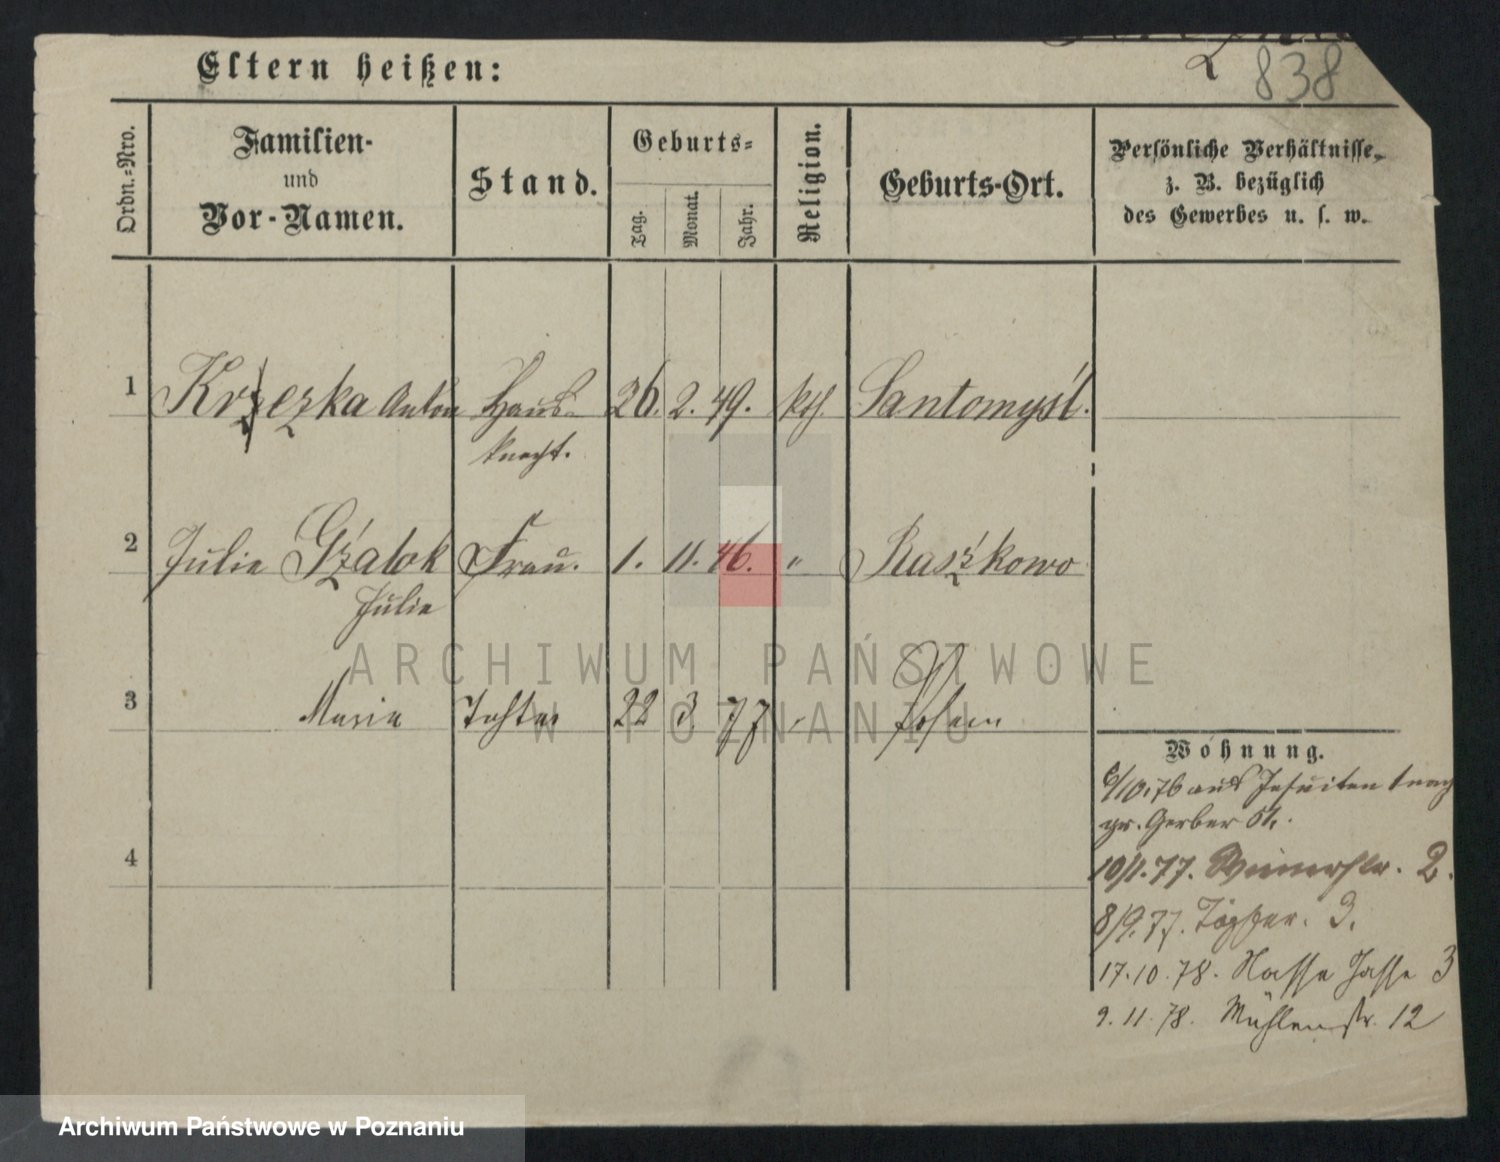 838
Eltern heißen:
Ordn.-Nro.
Familien-
und
Vor-Namen.
Stand.
Geburts-
Tag.
Monat.
Jahr.
Religion.
Geburts-Ort.
Persönliche Verhältnisse,
z. B. bezüglich
des Gewerbes u. s. w.
1 Krzezka Anton Haus- 26. 2. 49. kth Santomyśl.
knecht.
2 Julie Gżalok Frau. 1. 11. 46. " Raszkowo
Julie
3 Marie Tochter 22 3. 77 Posen
4
Wohnung.
6/10.76 aus Jesuiten
gr. Gerber 51.
10/1.77. 2.
8/9.77. Töpfer. 3.
17.10.78. Nasse Gasse 3
9.11.78. Mühlenstr. 12
ARCHIWUM PAŃSTWOWE
W POZNANIU
Archiwum Państwowe w Poznaniu